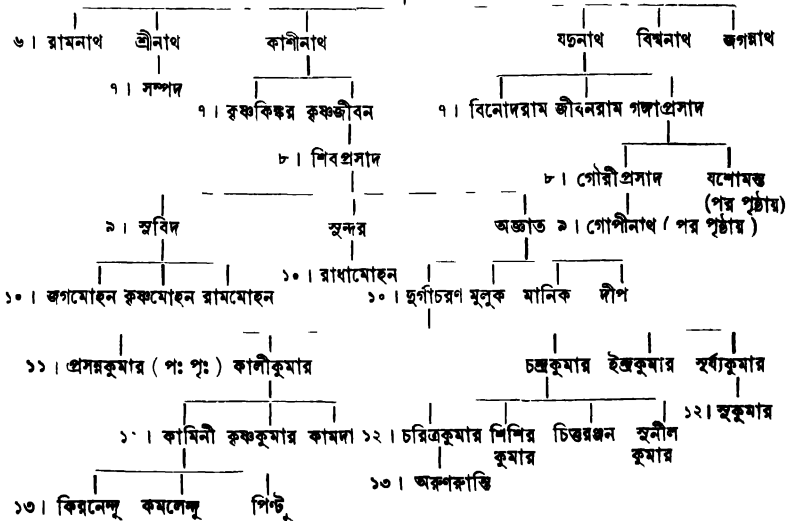 ৬। রামনাথ শ্রীনাথ কাশীনাথ যদুনাথ বিশ্বনাথ জগন্নাথ
৭। সম্পদ
৭। কৃষ্ণকিঙ্কর কৃষ্ণজীবন ৭। বিনোদরাম জীবনরাম গঙ্গাপ্রসাদ
৮। শিবপ্রসাদ
৮। গৌরীপ্রসাদ যশোমন্ত
(পর পৃষ্ঠায়)
৯। সুবিদ সুন্দর অজ্ঞাত ৯। গোপীনাথ (পর পৃষ্ঠায়)
১০। রাধামোহন
১০। জগমোহন কৃষ্ণমোহন রামমোহন ১০। দুর্গাচরণ মুলুক মানিক দীপ
১১। প্রসন্নকুমার (পঃ পৃঃ) কালীকুমার চন্দ্রকুমার ইন্দ্রকুমার সূর্য্যকুমার
১২। সুকুমার
১২। কামিনী কৃষ্ণকুমার কামদা ১২। চরিত্রকুমার শিশির চিত্তরঞ্জন সুনীল
কুমার কুমার
১৩। অরুণকান্তি
১৩। কিরনেন্দু কমলেন্দু পিণ্টু